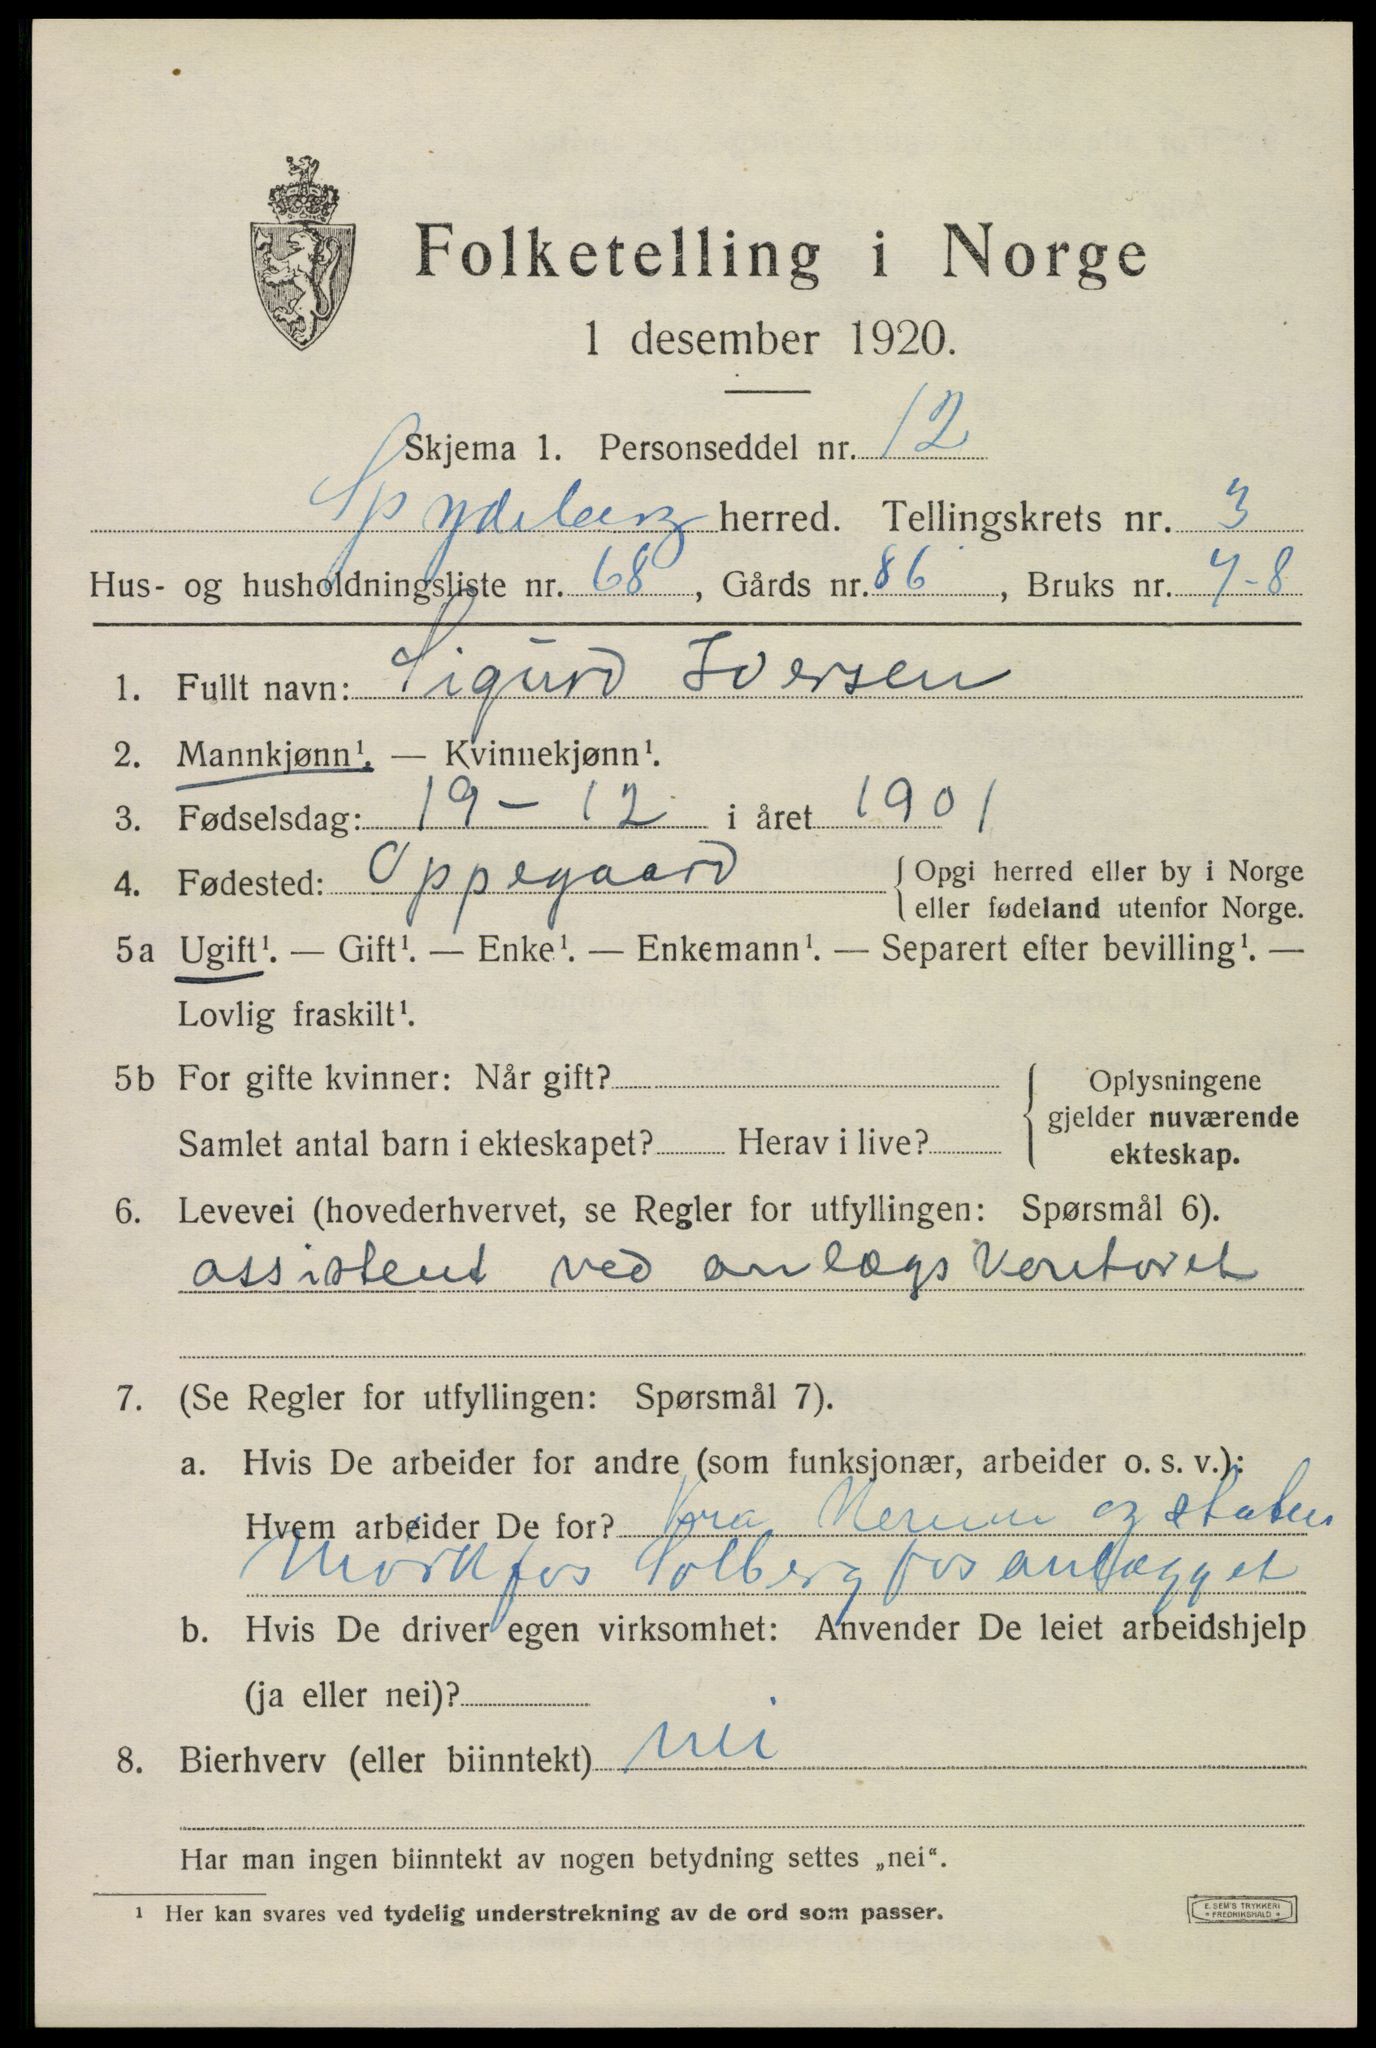 Folketelling i Norge
1 desember 1920.
Skjema 1. Personseddel nr. 12
Spydeberg herred. Tellingskrets nr. 3
Hus- og husholdningsliste nr. 68, Gårds nr. 86, Bruks nr. 7-8
1. Fullt navn: Sigurd Iversen
2. Mannkjønn¹. — Kvinnekjønn¹.
3. Fødselsdag: 19 - 12 i året 1901
4. Fødested: Oppegaard { Opgi herred eller by i Norge
eller fødeland utenfor Norge.
5a Ugift¹. — Gift¹. — Enke¹. — Enkemann¹. — Separert efter bevilling¹. —
Lovlig fraskilt¹.
5b For gifte kvinner: Når gift?
Samlet antal barn i ekteskapet? Herav i live?
{ Oplysningene
gjelder nuværende
ekteskap.
6. Levevei (hovederhvervet, se Regler for utfyllingen: Spørsmål 6).
assistent ved anlægskontoret
7. (Se Regler for utfyllingen: Spørsmål 7).
a. Hvis De arbeider for andre (som funksjonær, arbeider o. s. v.):
Hvem arbeider De for? og staten
Mørkfos Solbergfosanlægget
b. Hvis De driver egen virksomhet: Anvender De leiet arbeidshjelp
(ja eller nei)?
8. Bierhverv (eller biinntekt) nei
Har man ingen biinntekt av nogen betydning settes „nei“.
¹ Her kan svares ved tydelig understrekning av de ord som passer.
E. SEM'S TRYKKERI
* FREDRIKSHALD *